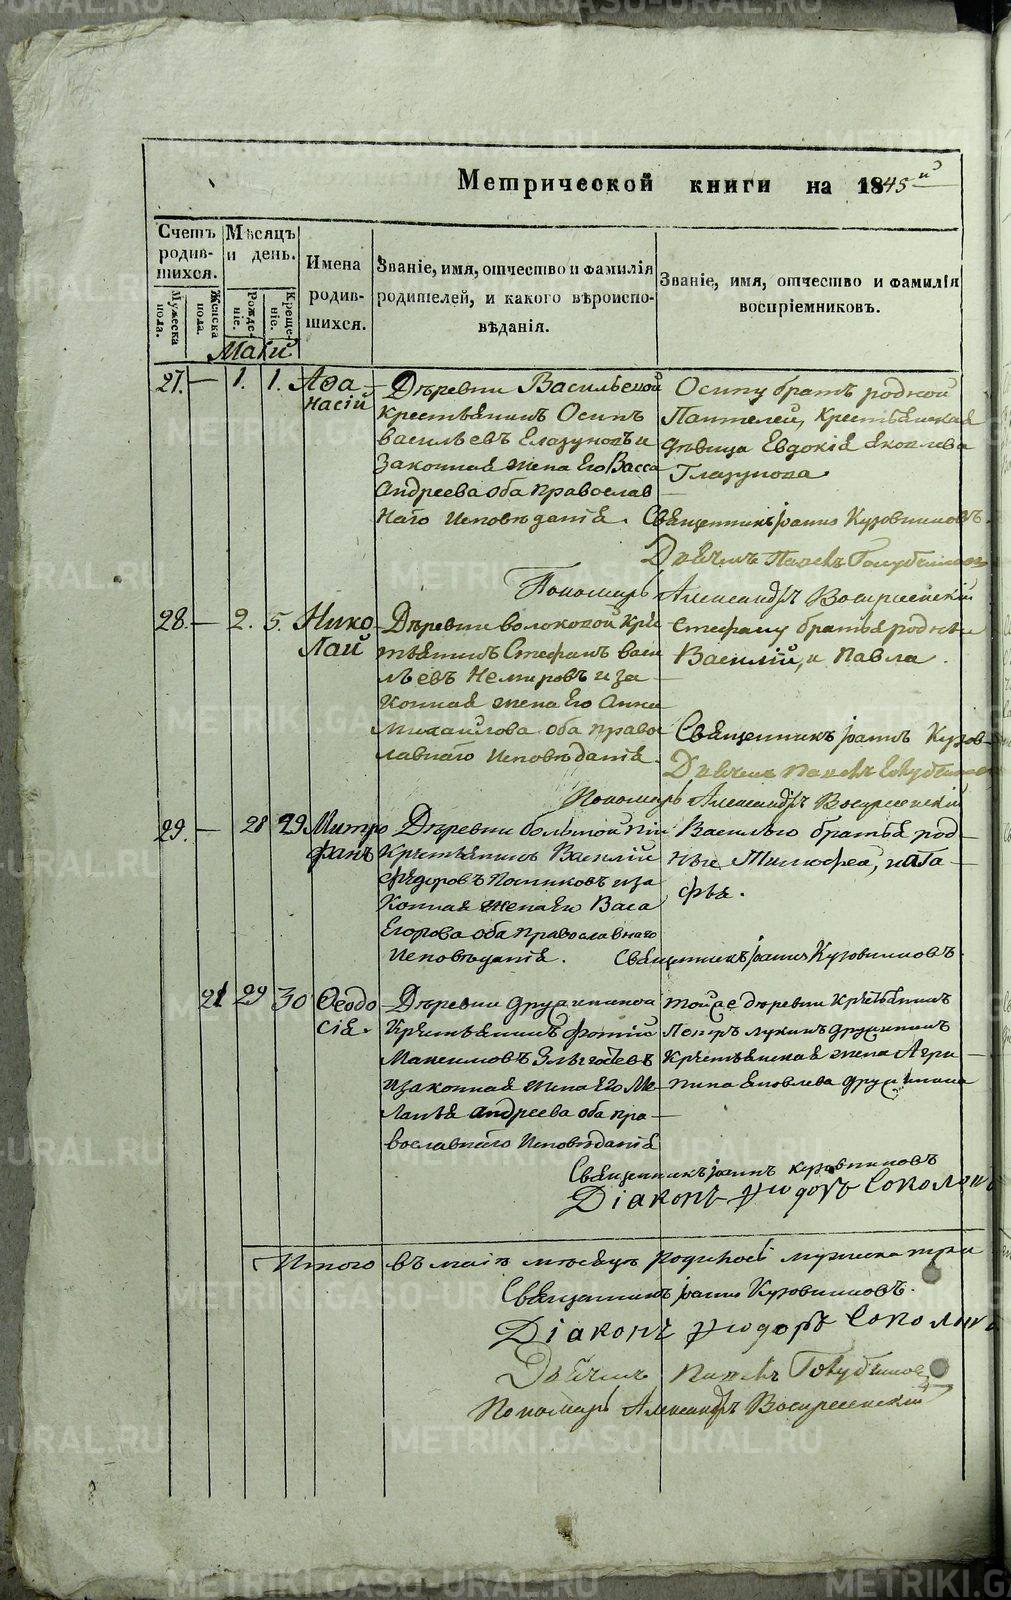 Метрической книги на 1845й
Счетъ родив-шихся.
Мужеска пола.
Женска пола.
Мѣсяцъ и день.
Рожде-ніе.
Креще-ніе.
Имена родив-шихся.
Званіе, имя, отчество и фамилія родителей, и какого вѣроиспо-вѣданія.
Званіе, имя, отчество и фамилія воспріемниковъ.
Маій
27. — 1. 1. Аѳа
насій
Дѣревни Васильевой
крестьянинъ Осипъ
васильевъ Глазуновъ и
законная жена Его Васса
Андреева оба православ
наго Исповѣданія.
Осипу братъ родной
Пантелей, Крестьянская
дѣвица Евдокія яковлева
Глазунова
Священникъ Іоаннъ Кузовниковъ.
Дьячекъ Павелъ Голубчиковъ
Пономарь Александръ Воскресенскій
28. — 2. 5. Нико
лай
Дѣревни волоковой Крес
тьянинъ Стефанъ васи
льевъ Немировъ и за
конная жена Его Анна
Михаилова оба право
лавнаго Исповѣданія.
Стефану братья родные
Василій, и Павла.
Священникъ Іоаннъ Кузов
Дьячекъ Павелъ Голубчиковъ
Пономарь Александръ Воскресенскій
29. — 28 29 Митро
фанъ
Дѣревни большой
Крестьянинъ Василій
Фѣдоровъ и за
конная жена Его Васа
Егорова оба православнаго
Исповѣданія.
Василью братья род
ные Тимофеа, и Ага
фья.
Священникъ Іоаннъ Кузовниковъ.
21 29 30 Ѳеодо
сія.
Дѣревни дружининой
Крестьянинъ фотій
Максимовъ
и законная жена Его Ме
ланья андреева оба пра
вославнаго Исповѣданія
тойже дѣревни Крестьянинъ
Петръ лукинъ дружининъ
Крестьянская жена Агри
пина яковлева дружинина
Священникъ Іоаннъ кузовниковъ
Діаконъ Ѳиодоръ Соколовъ
Итого въ маіѣ мѣсяцѣ родилось мужеска три
Священникъ Іоаннъ Кузовниковъ.
Діаконъ Ѳиодоръ Соколовъ
Дьячекъ Павелъ Голубчиковъ
Пономарь Александръ Воскресенскій
METRIKI.GASO-URAL.RU